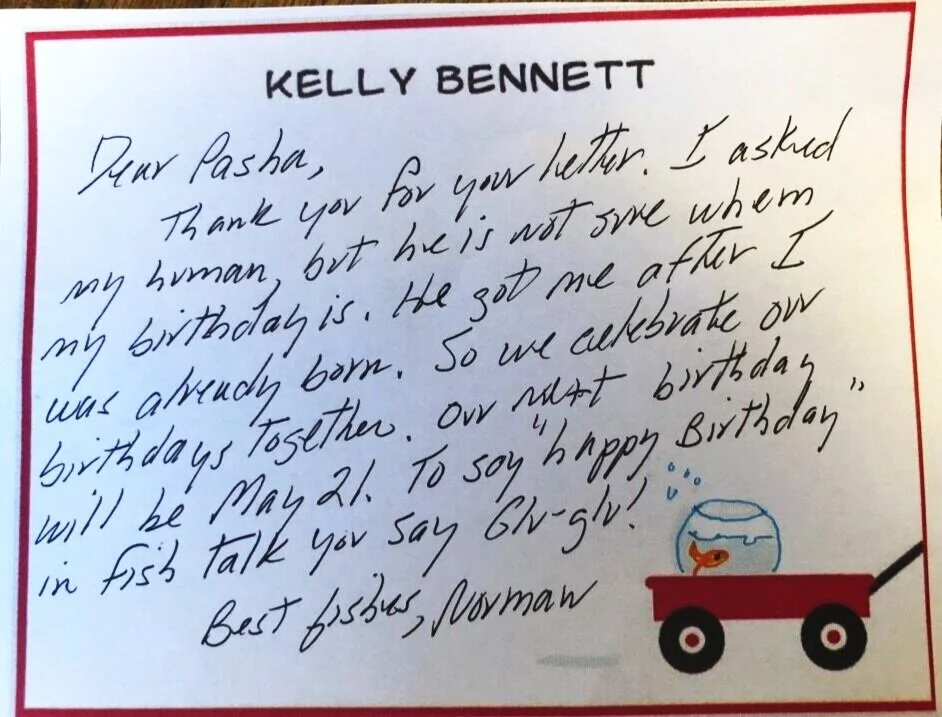 KELLY BENNETT
Dear Pasha,
Thank you for your letter. I asked
my human, but he is not sure when
my birthday is. He got me after I
was already born. So we celebrate our
birthdays together. Our next birthday
will be May 21. To say "happy Birthday"
in fish talk you say Glu-glu!
Best fishes, Norman